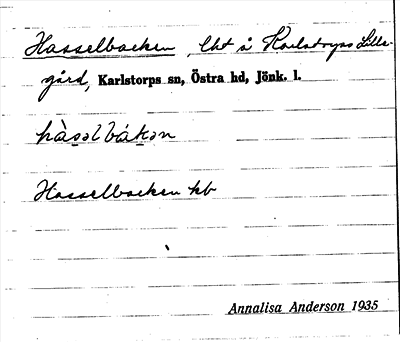 Hasselbacken, lht å Karlstorps Lilla-
gård, Karlstorps sn, Östra hd, Jönk. l.
hàsəlbákən
Hasselbacken kb
Annalisa Anderson 1935